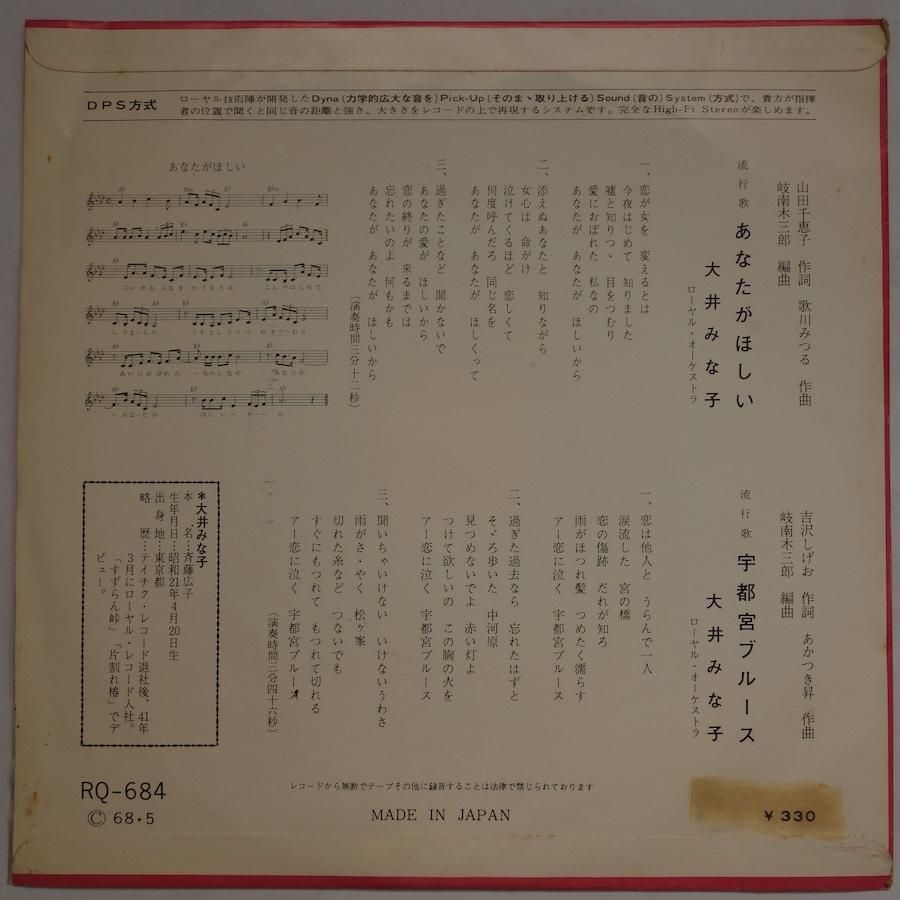 DPS方式
ローヤル技術陣が開発したDyna(力学的広大な音を)Pick-Up(そのまゝ取り上げる)Sound(音の)System(方式)で、貴方が指揮
者の位置で聞くと同じ音の距離と強さ、大きさをレコードの上で再現するシステムです。完全なHigh-Fi Stereoが楽しめます。
山田千恵子 作詞 歌川みつる 作曲
岐南木三郎 編曲
流行歌 あなたがほしい
大井みな子
ローヤル・オーケストラ
一、恋が女を 変えるとは
今夜はじめて 知りました
嘘と知りつゝ 目をつむり
愛におぼれた 私なの
あなたが あなたが ほしいから
二、添えぬあなたと 知りながら
女心は 命がけ
泣けてくるほど 恋しくて
何度呼んだろ 同じ名を
あなたが あなたが ほしくって
三、過ぎたことなど 聞かないで
あなたの愛が ほしいから
恋の終りが 来るまでは
忘れたいのよ 何もかも
あなたが あなたが ほしいから
(演奏時間三分十二秒)
あなたがほしい
こいがおんなを かえるとは こんやはじめて
しりまーした うそとしりつつ めをつーむり
あいにおぼれた ーわたしなの あなたが
ーあなーたが ほしいーかーーら
吉沢しげお 作詞 あかつき昇 作曲
岐南木三郎 編曲
流行歌 宇都宮ブルース
大井みな子
ローヤル・オーケストラ
一、恋は他人と うらんで一人
涙流した 宮の橋
恋の傷跡 だれが知ろ
雨がほつれ髪 つめたく濡らす
アー恋に泣く 宇都宮ブルース
二、過ぎた過去なら 忘れたはずと
そゞろ歩いた 中河原
見つめないでよ 赤い灯よ
つけて欲しいの この胸の火を
アー恋に泣く 宇都宮ブルース
三、聞いちゃいけない いけないうわさ
雨がさゝやく 松ヶ峯
切れた糸など つないでも
すぐにもつれて もつれて切れる
アー恋に泣く 宇都宮ブルース
(演奏時間三分四十六秒)
*大井みな子
本名…斉藤広子
生年月日…昭和21年4月20日生
出身地…東京都
略歴…テイチク・レコード退社後、41年
3月にローヤル・レコード入社。
「すずらん峠」「片割れ椿」でデ
ビュー。
RQ-684
© 68・5
レコードから無断でテープその他に録音することは法律で禁じられております
MADE IN JAPAN
¥330